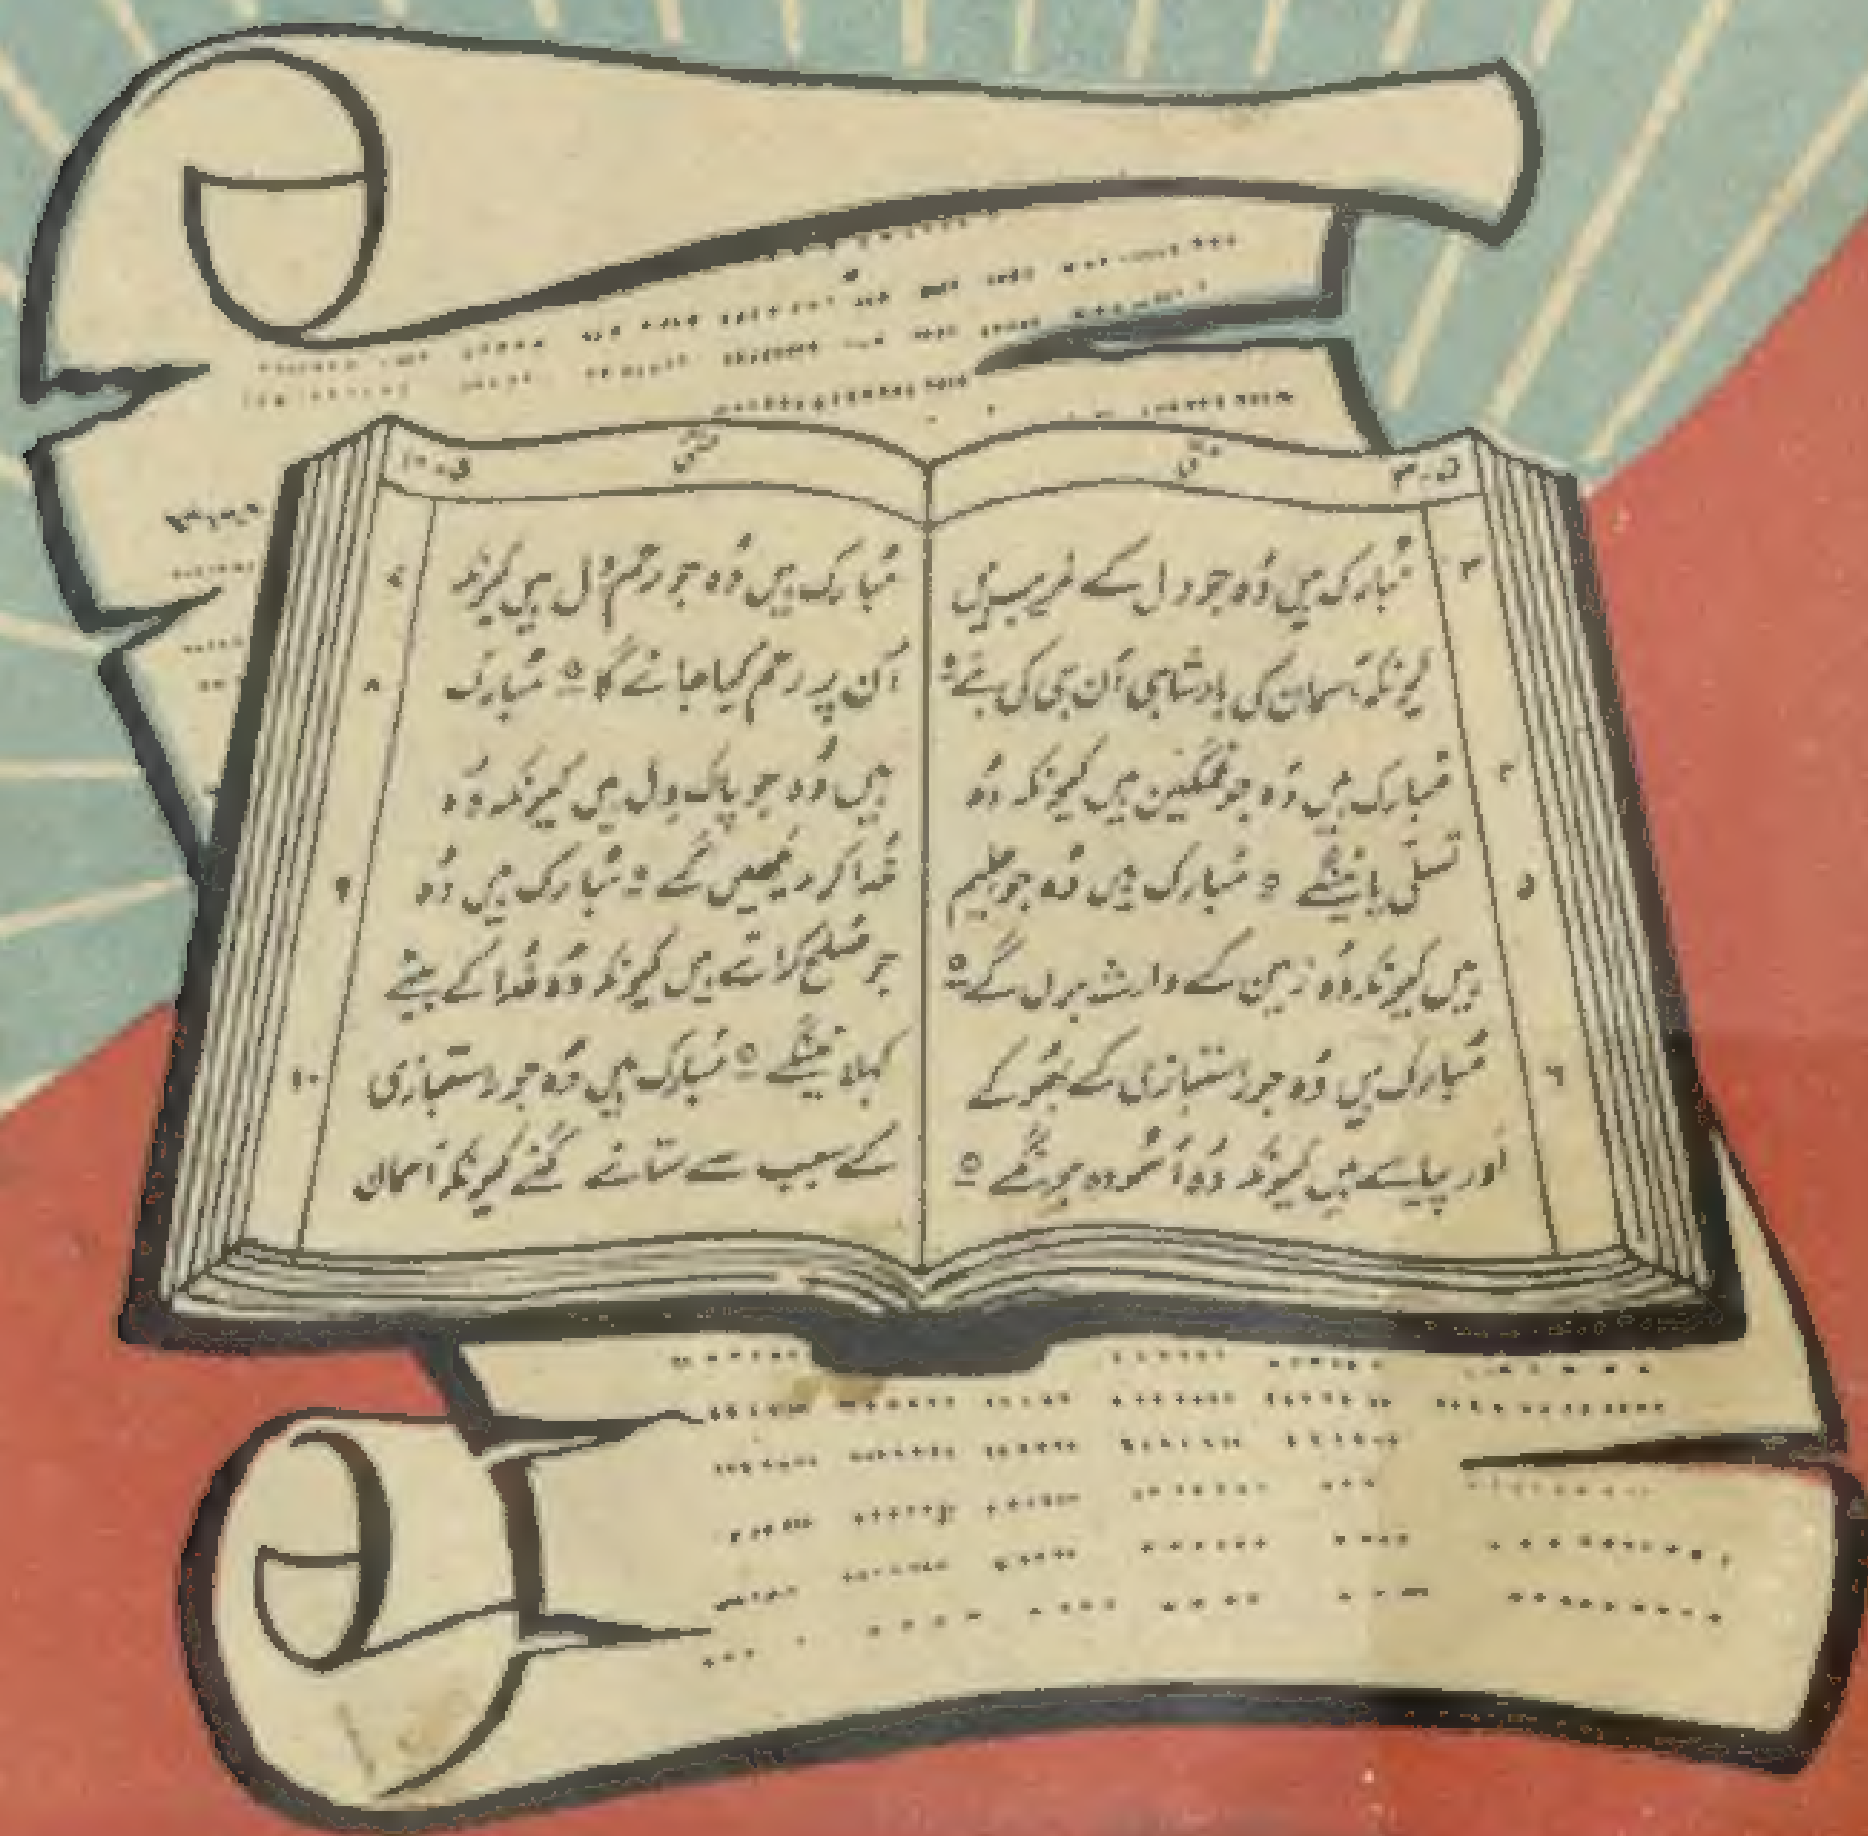 متی
۳-۵
۳
مُبارک ہیں وُہ جو دل کے غریب ہیں
کیونکہ آسمان کی بادشاہی اُن ہی کی ہَے ۝
۴
مُبارک ہیں وُہ جو غمگین ہیں کیونکہ وُہ
تسلّی پائینگے ۝ مُبارک ہیں وُہ جو حلیم
۵
ہیں کیونکہ وُہ زمین کے وارث ہوں گے ۝
مُبارک ہیں وُہ جو راستبازی کے بھُوکے
۶
اَور پیاسے ہیں کیونکہ وُہ آسُودہ ہونگے ۝
متی
۵-۱۰
مُبارک ہیں وُہ جو رحم دِل ہیں کیونکہ
۷
اُن پر رحم کیا جائے گا ۝ مُبارک
۸
ہیں وُہ جو پاک دِل ہیں کیونکہ وُہ
خُدا کو دیکھیں گے ۝ مُبارک ہیں وُہ
۹
جو صُلح کراتے ہیں کیونکہ وُہ خُدا کے بیٹے
کہلائینگے ۝ مُبارک ہیں وُہ جو راستبازی
۱۰
کے سبب سے ستائے گئے کیونکہ آسمان